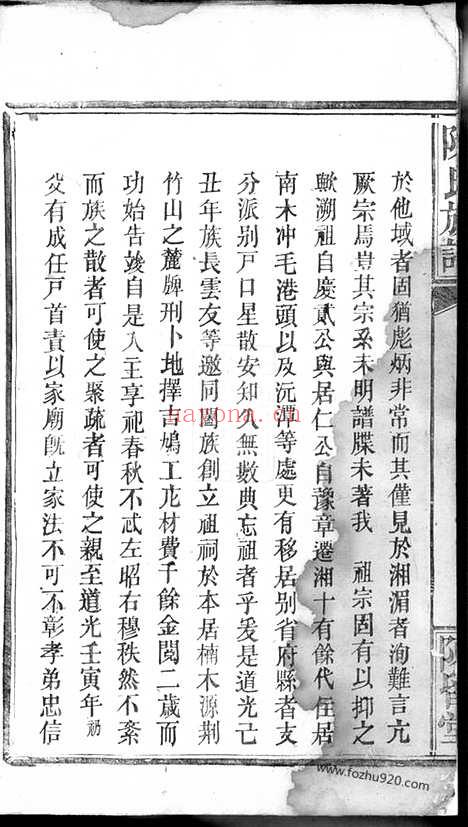 陳氏族譜
於他域者固猶彪炳非常而其僅見於湘湄者洵難言亢
厥宗焉豈其宗系未明譜牒未著我 祖宗固有以抑之
歟溯祖自慶貳公與居仁公自豫章遷湘十有餘代住居
南木冲毛港頭以及沅潭等處更有移居别省府縣者支
分派别戸口星散安知久無數典忘祖者乎爰是道光己
丑年族長雲友等邀同闔族創立祖祠於本居楠木源荆
竹山之麓牌刑卜地擇吉鳩工庀材費千餘金閱二歲而
功始告竣自是入主享祀春秋不忒左昭右穆秩然不紊
而族之散者可使之聚疏者可使之親至道光壬寅年
父有成任戸首責以家廟旣立家法不可不彰孝弟忠信
hayona.cn
www.fozhu920.com